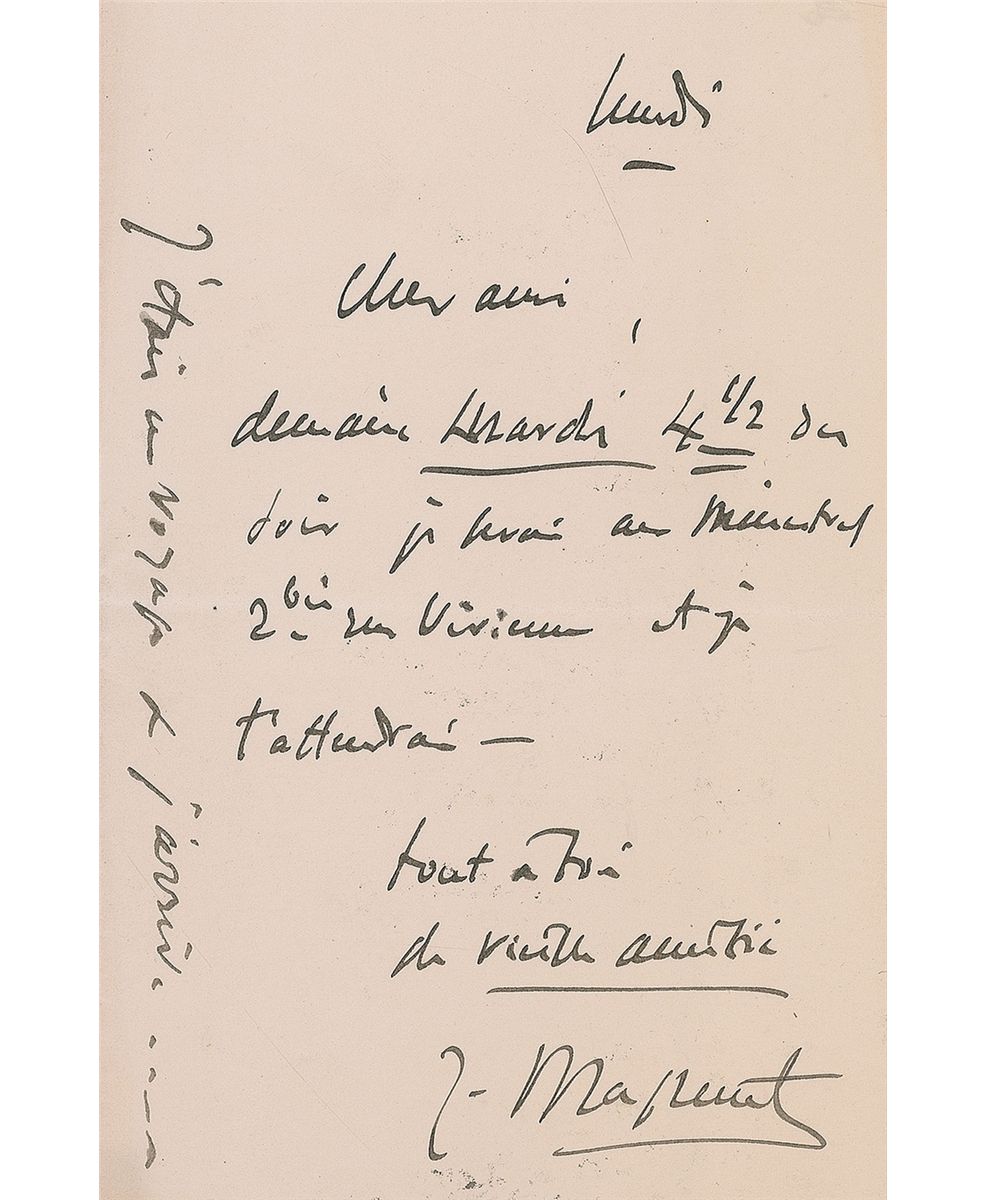 lundi
Cher ami,
demain Mardi 4 1/2 du
soir je serai au Ménestrel
2 bis rue Vivienne et je
t'attendrai —
tout à toi
de vieille amitié
J. Massenet
J'étais en voyage & j'arrive ....